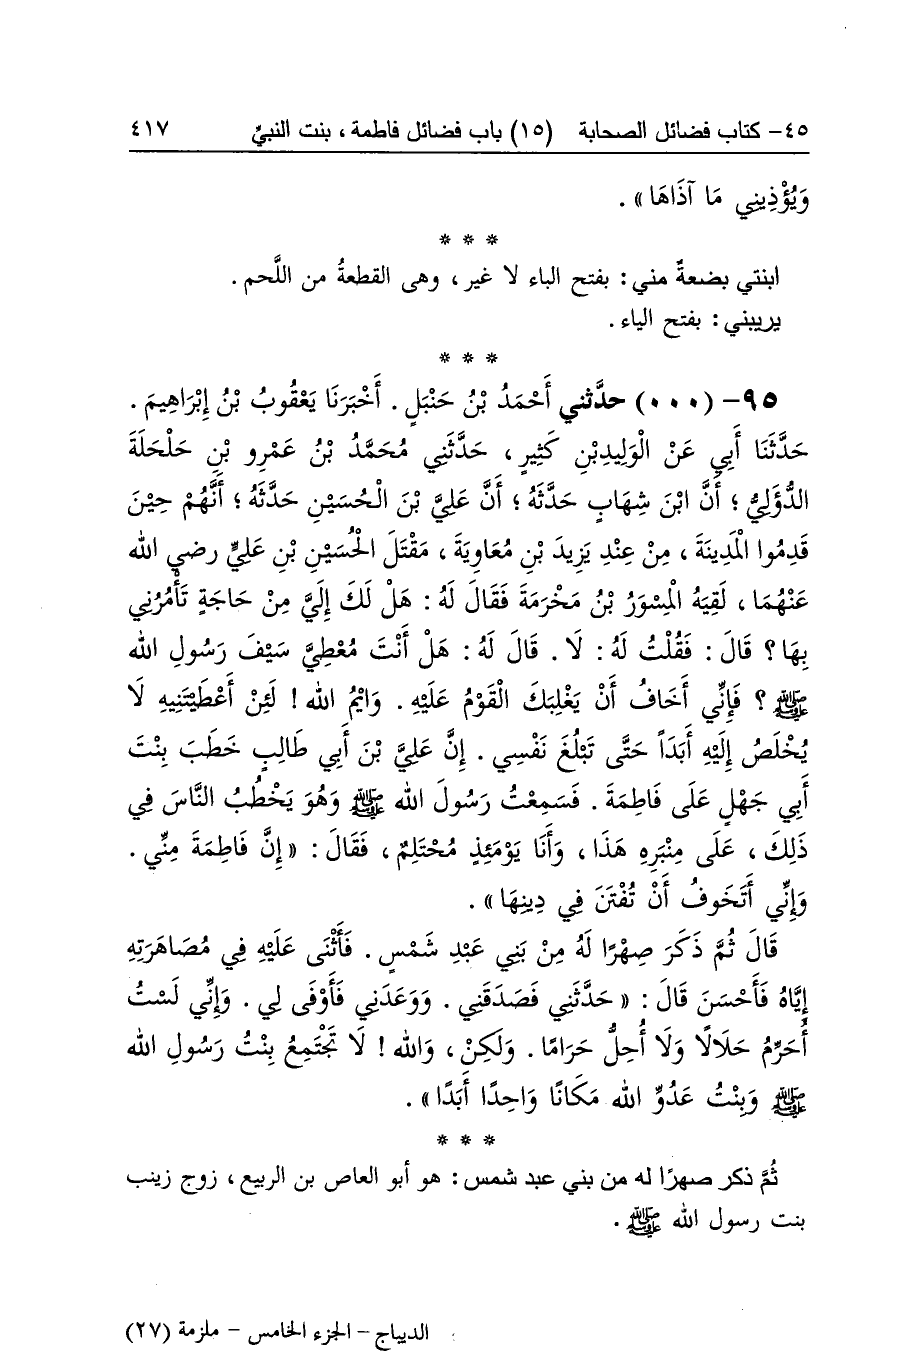 ٤٥- كتاب فضائل الصحابة (١٥) باب فضائل فاطمة ، بنت النبيّ ٤١٧
وَيُؤْذِينِي مَا آذَاهَا» .
* * *
ابنتي بضعةٌ مني : بفتح الباء لا غير ، وهى القطعةُ من اللَّحم .
يريبني : بفتح الياء .
* * *
٩٥- (٠٠٠) حدَّثني أَحْمَدُ بْنُ حَنْبَلٍ . أَخْبَرَنَا يَعْقُوبُ بْنُ إِبْرَاهِيمَ .
حَدَّثَنَا أَبِي عَنْ الْوَلِيدِبْنِ كَثِيرٍ ، حَدَّثَنِي مُحَمَّدُ بْنُ عَمْرِو بْنِ حَلْحَلَةَ
الدُّؤَلِيُّ ؛ أَنَّ ابْنَ شِهَابٍ حَدَّثَهُ ؛ أَنَّ عَلِيَّ بْنَ الْحُسَيْنِ حَدَّثَهُ ؛ أَنَّهُمْ حِيْنَ
قَدِمُوا الْمَدِينَةَ ، مِنْ عِنْدِ يَزِيدَ بْنِ مُعَاوِيَةَ ، مَقْتَلَ الْحُسَيْنِ بْنِ عَلِيٍّ رضي الله
عَنْهُمَا ، لَقِيَهُ الْمِسْوَرُ بْنُ مَخْرَمَةَ فَقَالَ لَهُ : هَلْ لَكَ إِلَيَّ مِنْ حَاجَةٍ تَأْمُرُنِي
بِهَا ؟ قَالَ : فَقُلْتُ لَهُ : لَا . قَالَ لَهُ : هَلْ أَنْتَ مُعْطِيَّ سَيْفَ رَسُولِ الله
ﷺ ؟ فَإِنِّي أَخَافُ أَنْ يَغْلِبَكَ الْقَوْمُ عَلَيْهِ . وَايْمُ الله ! لَئِنْ أَعْطَيْتَنِيهِ لَا
يُخْلَصُ إِلَيْهِ أَبَدًا حَتَّى تَبْلُغَ نَفْسِي . إِنَّ عَلِيَّ بْنَ أَبِي طَالِبٍ خَطَبَ بِنْتَ
أَبِي جَهْلٍ عَلَى فَاطِمَةَ . فَسَمِعْتُ رَسُولَ الله ﷺ وَهُوَ يَخْطُبُ النَّاسَ فِي
ذَلِكَ ، عَلَى مِنْبَرِهِ هَذَا ، وَأَنَا يَوْمَئِذٍ مُحْتَلِمٌ ، فَقَالَ : «إِنَّ فَاطِمَةَ مِنِّي .
وَإِنِّي أَتَخَوفُ أَنْ تُفْتَنَ فِي دِينِهَا» .
قَالَ ثُمَّ ذَكَرَ صِهْرًا لَهُ مِنْ بَنِي عَبْدِ شَمْسٍ . فَأَثْنَى عَلَيْهِ فِي مُصَاهَرَتِهِ
إِيَّاهُ فَأَحْسَنَ قَالَ : «حَدَّثَنِي فَصَدَقَنِي . وَوَعَدَنِي فَأَوْفَى لِي . وَإِنِّي لَسْتُ
أُحَرِّمُ حَلَالًا وَلَا أُحِلُّ حَرَامًا . وَلَكِنْ ، وَالله ! لَا تَجْتَمِعُ بِنْتُ رَسُولِ الله
ﷺ وَبِنْتُ عَدُوِّ الله مَكَانًا وَاحِدًا أَبَدًا» .
* * *
ثُمَّ ذكر صهرًا له من بني عبد شمس : هو أبو العاص بن الربيع ، زوج زينب
بنت رسول الله ﷺ .
الديباج - الجزء الخامس - ملزمة (٢٧)